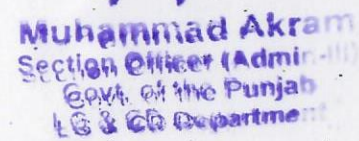 Muhammad Akram
Section Officer (Admin-III)
Govt. of the Punjab
LG & CD Department